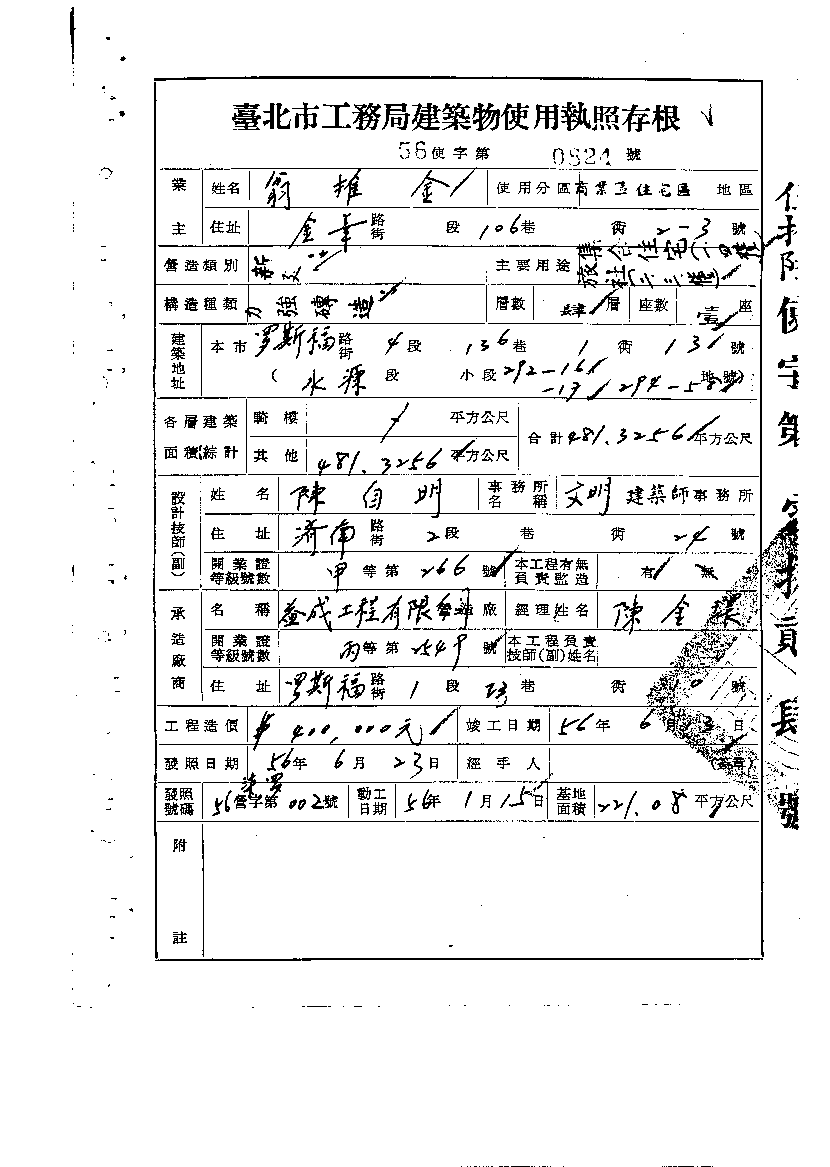 臺北市工務局建築物使用執照存根
56使字第 0824 號
業主 姓名 翁 金 使用分區 商業區住宅區 地區
住址 金華 路街 段 106巷 衖 2-3 號
營造類別 新 主要用途 集合住宅 旅社
構造種類 加強磚造 層數 肆 層 座數 壹 座
建築地址 本市 罗斯福 路街 4 段 136 巷 1 衖 13 號
(水源 段 小段 292-16 -17 294-5 地號)
各層建築面積綜計 騎樓 平方公尺 合計 481.3256 平方公尺
其他 481.3256 平方公尺
設計技師(副) 姓名 陳自明 事務所名稱 文明 建築師事務所
住址 濟南 路街 2段 巷 衖 24 號
開業證等級號數 甲 等第 266 號 本工程有無負責監造 有 無
承造廠商 名稱 益成工程有限 廠 經理姓名 陳金
開業證等級號數 丙等第 2549 號 本工程負責技師(副)姓名
住址 罗斯福 路街 1 段 巷 衖 號
工程造價 $400,000元 竣工日期 56年 6月 3日
發照日期 56年 6月 23日 經手人
發照號碼 56營字第002號 動工日期 56年 1月15日 基地面積 221.08 平方公尺
附註